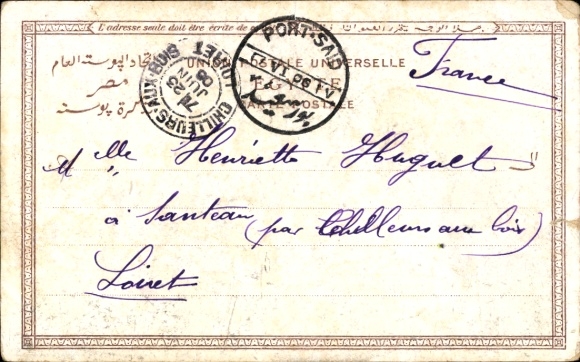 L'adresse seule doit être écrite de
UNION POSTALE UNIVERSELLE
اتحاد البوستة العام
EGYPTE
مصر
CARTE POSTALE
تذكرة بوستة
CHILLEURS-AUX-BOIS
LOIRET
23
JUIN
06
PORT-SAID
VI 06
بورسعيد
France
Mlle Henriette Huguet
à Santeau (par Chilleurs aux bois)
Loiret